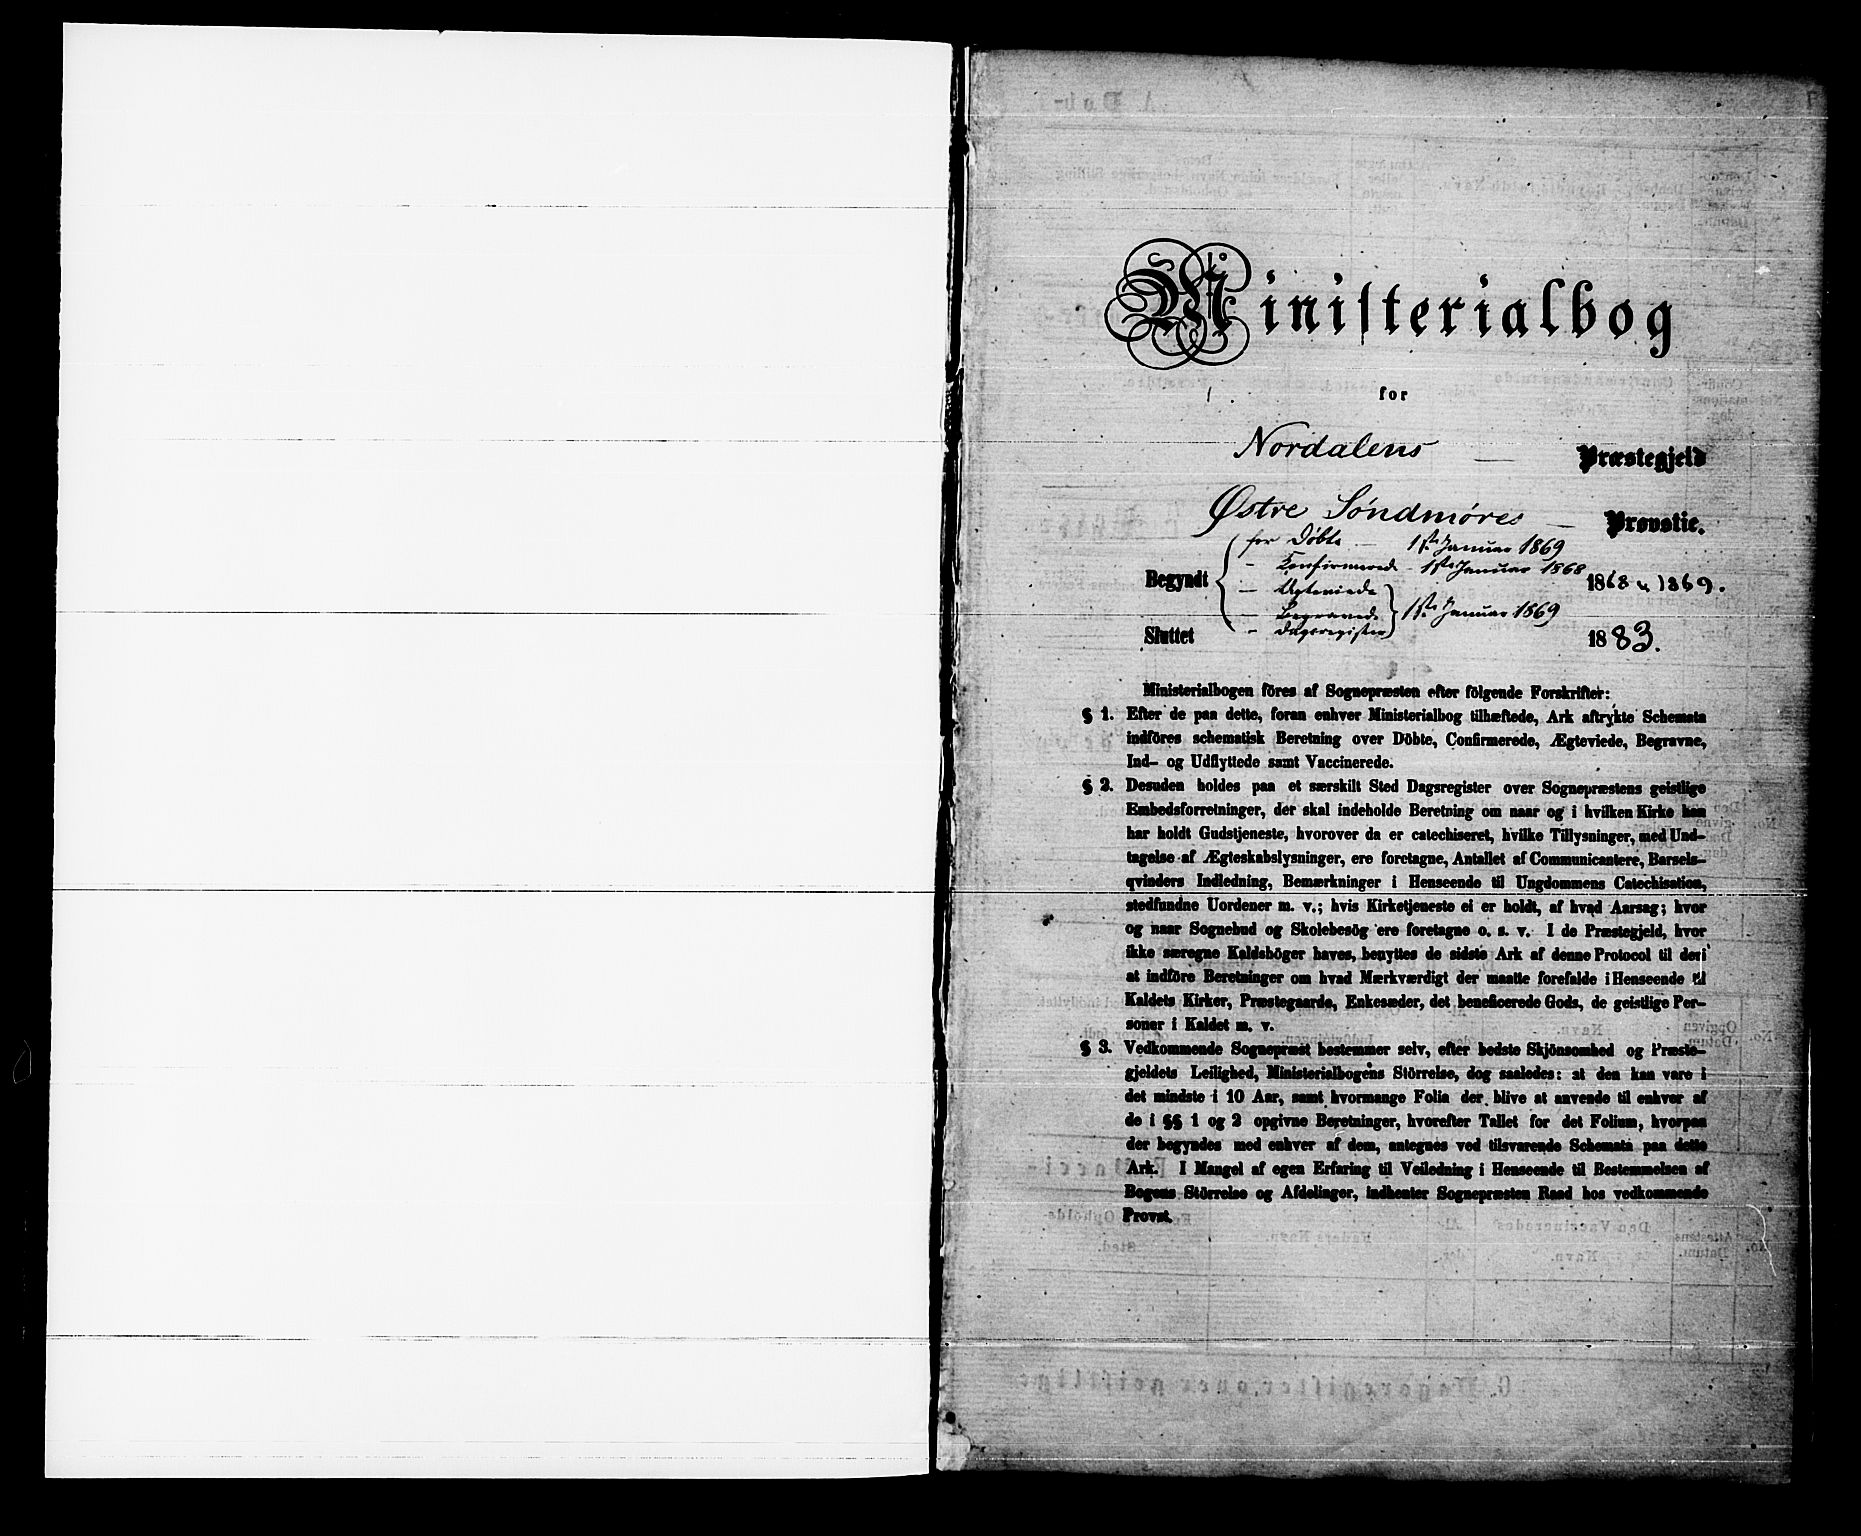 Ministerialbog
for
Nordalens — Præstegjeld
Østre Søndmøres — Provstie.
for Døbte — 1ste Januar 1869
- Konfirmerede - 1ste Januar 1868
Begyndt 1868 & 1869.
- Ægteviede
- Begravede 1ste Januar 1869
- Dagsregister
Sluttet 1883.
Ministerialbogen föres af Sognepræsten efter fölgende Forskrifter:
§ 1. Efter de paa dette, foran enhver Ministerialbog tilhæftede, Ark aftrykte Schemata
indföres schematisk Beretning over Döbte, Confirmerede, Ægteviede, Begravne,
Ind- og Udflyttede samt Vaccinerede.
§ 2. Desuden holdes paa et særskilt Sted Dagsregister over Sognepræstens geistlige
Embedsforretninger, der skal indeholde Beretning om naar og i hvilken Kirke han
har holdt Gudstjeneste, hvorover da er catechiseret, hvilke Tillysninger, med Und-
tagelse af Ægteskabslysninger, ere foretagne, Antallet af Communicantere, Barsels-
qvinders Indledning, Bemærkninger i Henseende til Ungdommens Catechisation,
stedfundne Uordener m. v.; hvis Kirketjeneste ei er holdt, af hvad Aarsag; hvor
og naar Sognebud og Skolebesög ere foretagne o. s. v. I de Præstegjeld, hvor
ikke særegne Kaldsböger haves, benyttes de sidste Ark af denne Protocol til deri
at indföre Beretninger om hvad Mærkværdigt der maatte forefalde i Henseende til
Kaldets Kirker, Præstegaarde, Enkesæder, det beneficerede Gods, de geistlige Per-
soner i Kaldet m. v.
§ 3. Vedkommende Sognepræst bestemmer selv, efter bedste Skjönsomhed og Præste-
gjeldets Leilighed, Ministerialbogens Störrelse, dog saaledes: at den kan vare i
det mindste i 10 Aar, samt hvormange Folia der blive at anvende til enhver af
de i §§ 1 og 2 opgivne Beretninger, hvorefter Tallet for det Folium, hvorpaa
der begyndes med enhver af dem, antegnes ved tilsvarende Schemata paa dette
Ark. I Mangel af egen Erfaring til Veiledning i Henseende til Bestemmelsen af
Bogens Störrelse og Afdelinger, indhenter Sognepræsten Raad hos vedkommende
Provst.